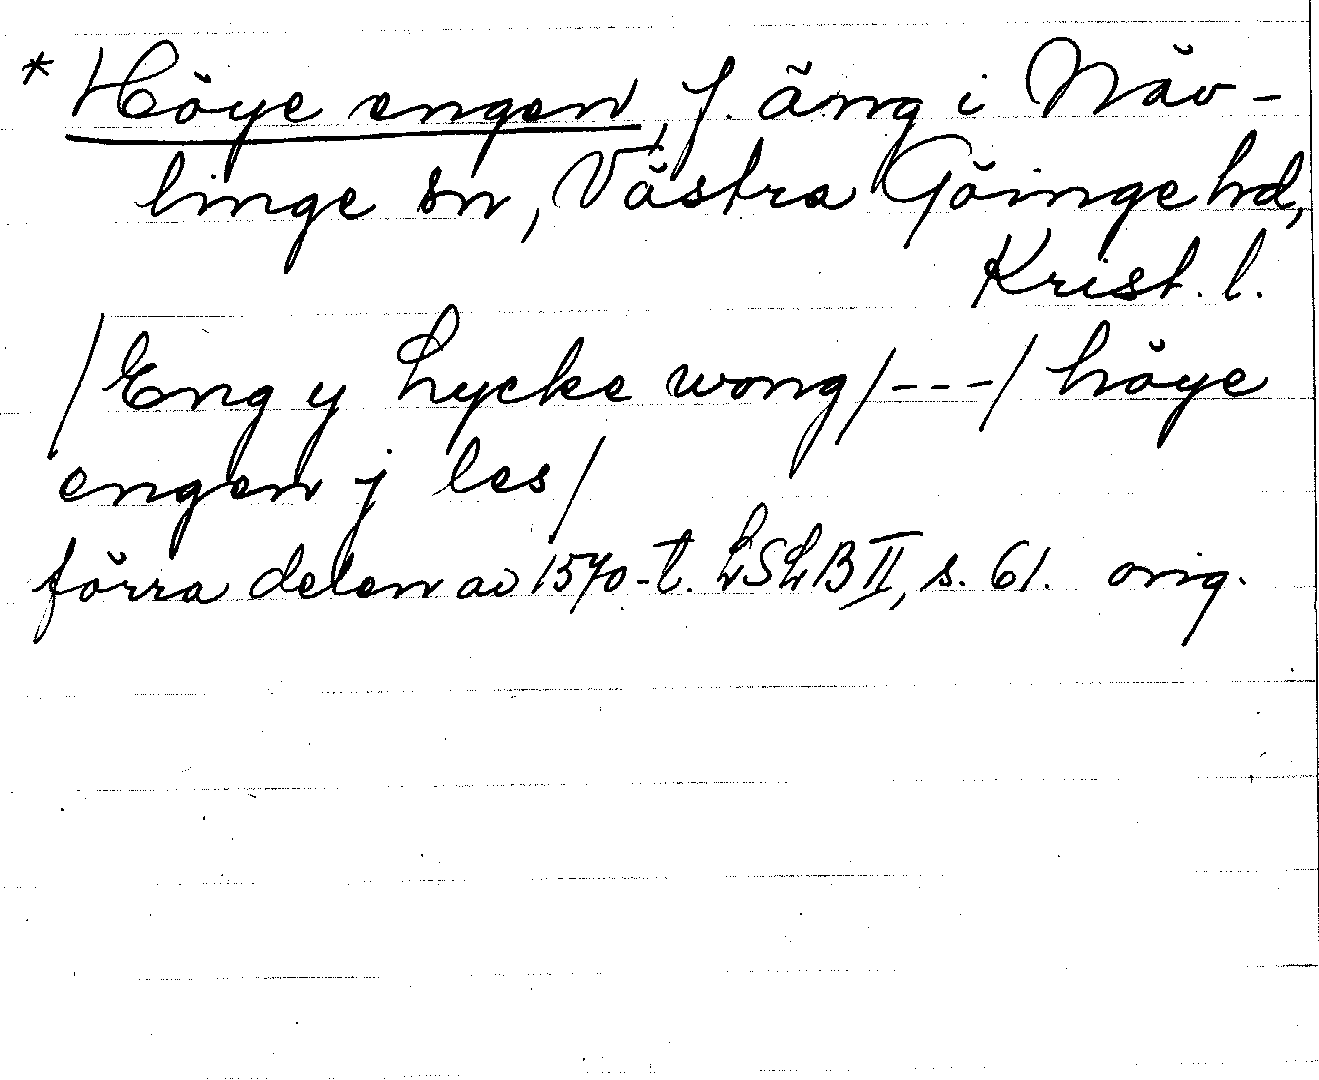 * Höye engen, f. äng i Näv-
linge sn, Västra Göinge hd,
Krist. l.
/Eng y Lycke wong/---/ höye
engen j les/
förra delen av 1570-t. LSLB II, s. 61. orig.